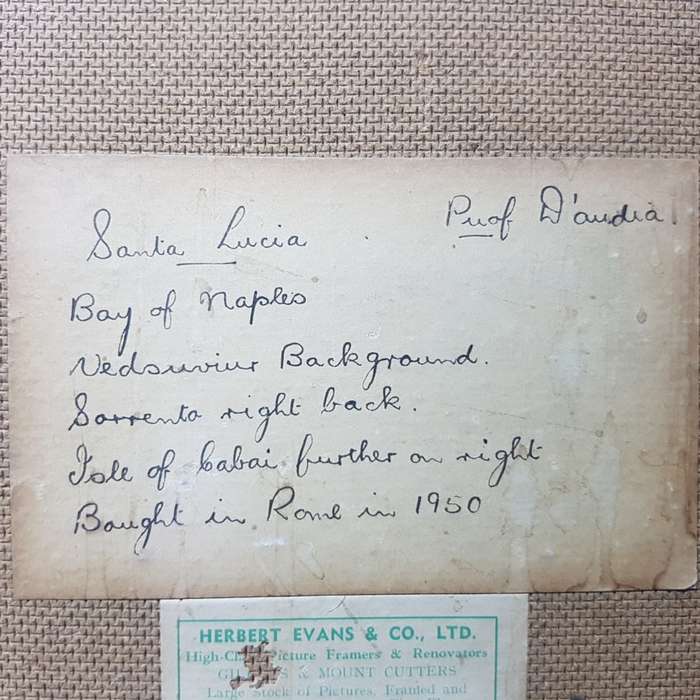 Santa Lucia
Prof D'andria
Bay of Naples
Vedsuviur Background.
Sorrento right back.
Isle of Cabai further on right
Bought in Rome in 1950
HERBERT EVANS & CO., LTD.
Picture Framers & Renovators
& MOUNT CUTTERS
Large Stock of Pictures, Framed and